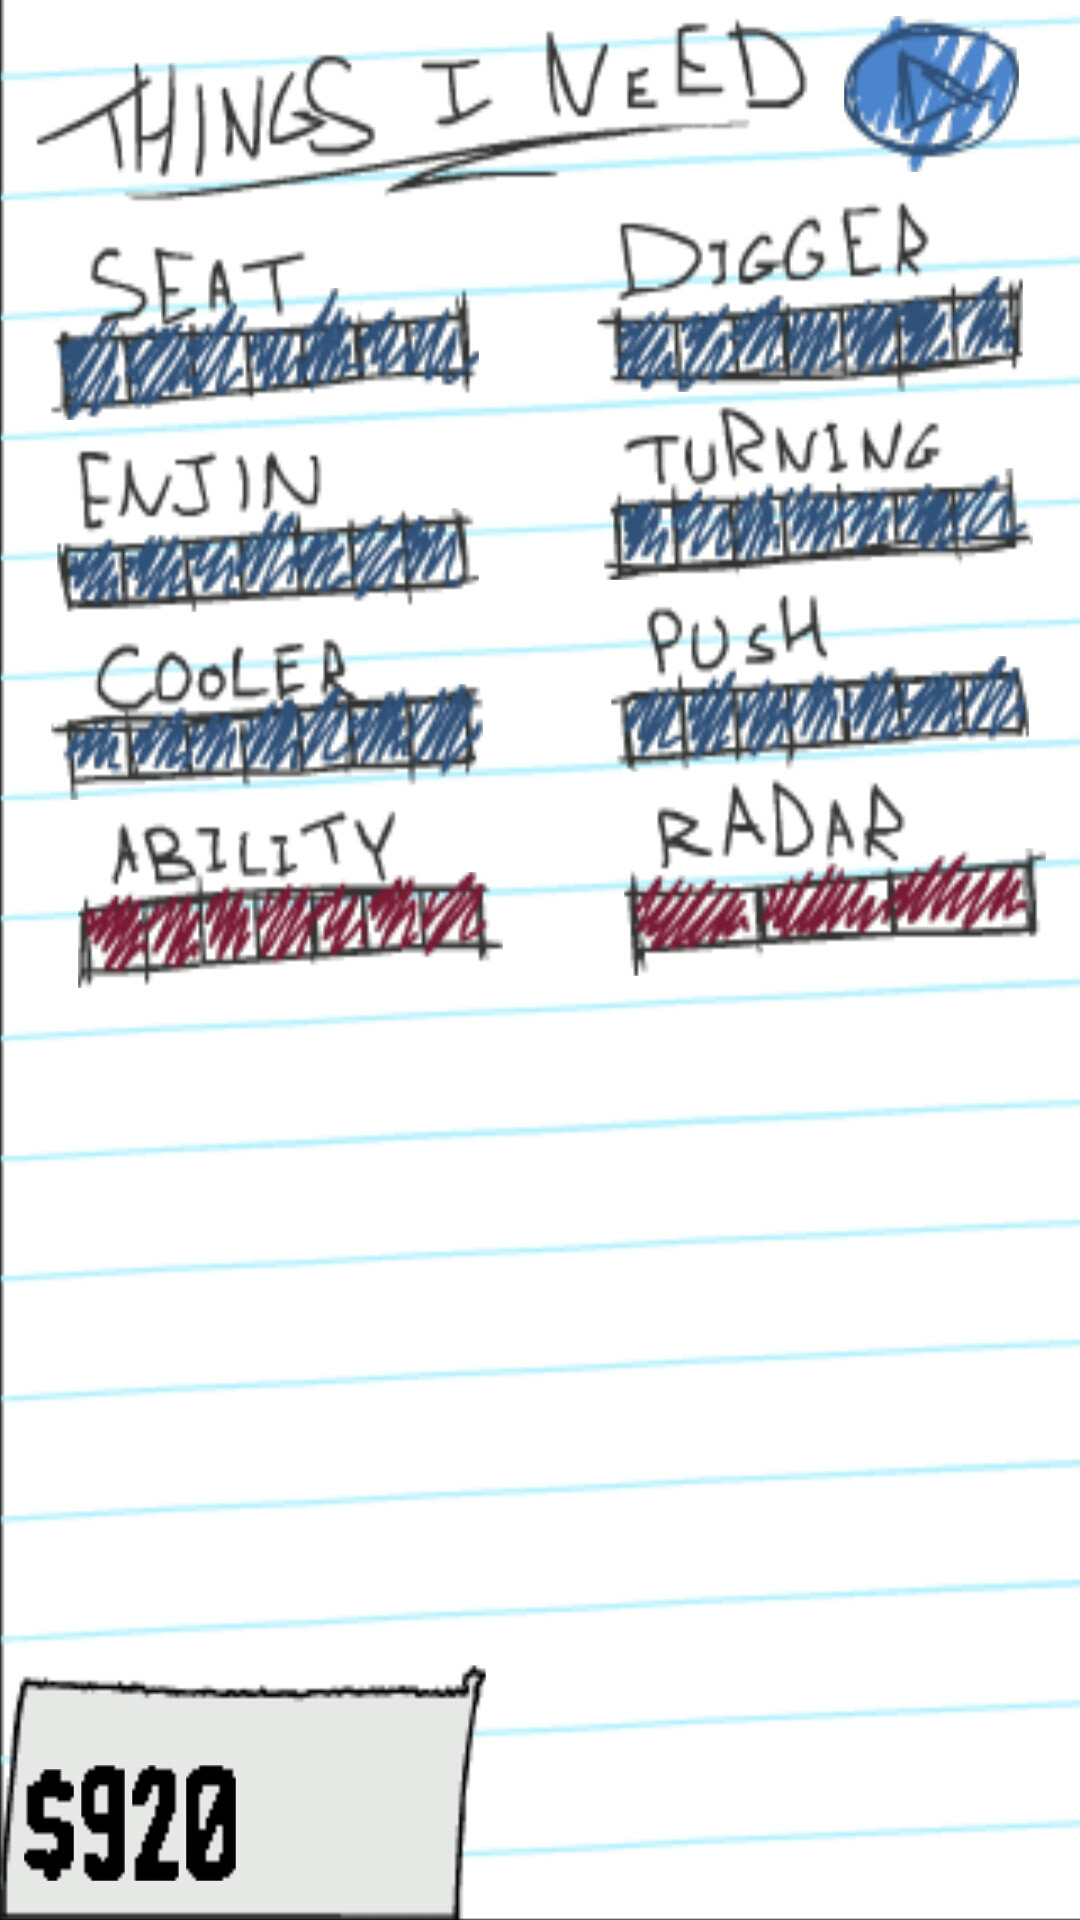 THINGS I NEED
SEAT
DIGGER
ENJIN
TURNING
COOLER
PUSH
ABILITY
RADAR
$920